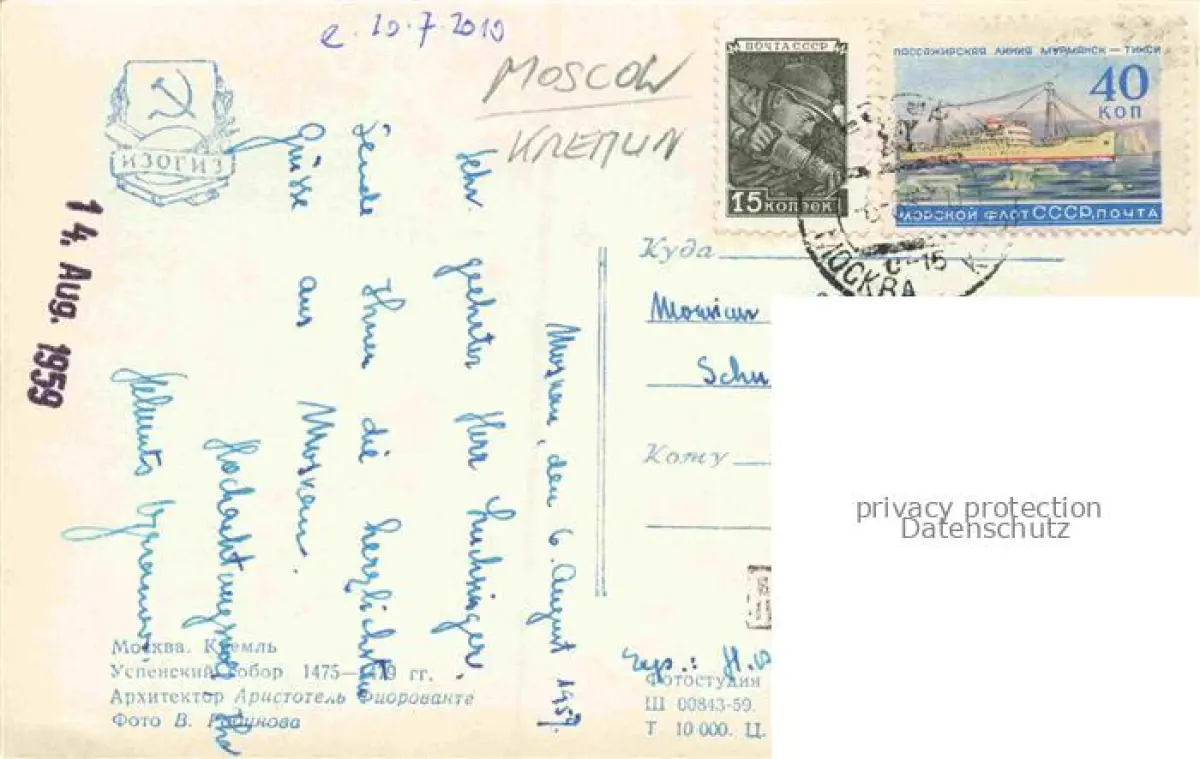 e. 10.7.2010
MOSCOW
КРЕМЛИ
ИЗОГИЗ
14. Aug. 1959
ПОЧТА СССР
15 КОПЕЕК
ПАССАЖИРСКАЯ ЛИНИЯ МУРМАНСК — ТИКСИ
40
КОП
МОРСКОЙ ФЛОТ СССР, ПОЧТА
МОСКВА
Moskau, den 6. August 1959.
Sehr geehrter Herr Luchsinger,
Sende Ihnen die herzlichsten
Grüsse aus Moskau.
Hochachtungsvoll Ihr
Куда
Schu
Кому
privacy protection
Datenschutz
Москва. Кремль
Успенский собор 1475—1479 гг.
Архитектор Аристотель Фиорованте
Фото В.
Exp.: H.
Фотостудия
Ш 00843-59.
Т 10 000. Ц.